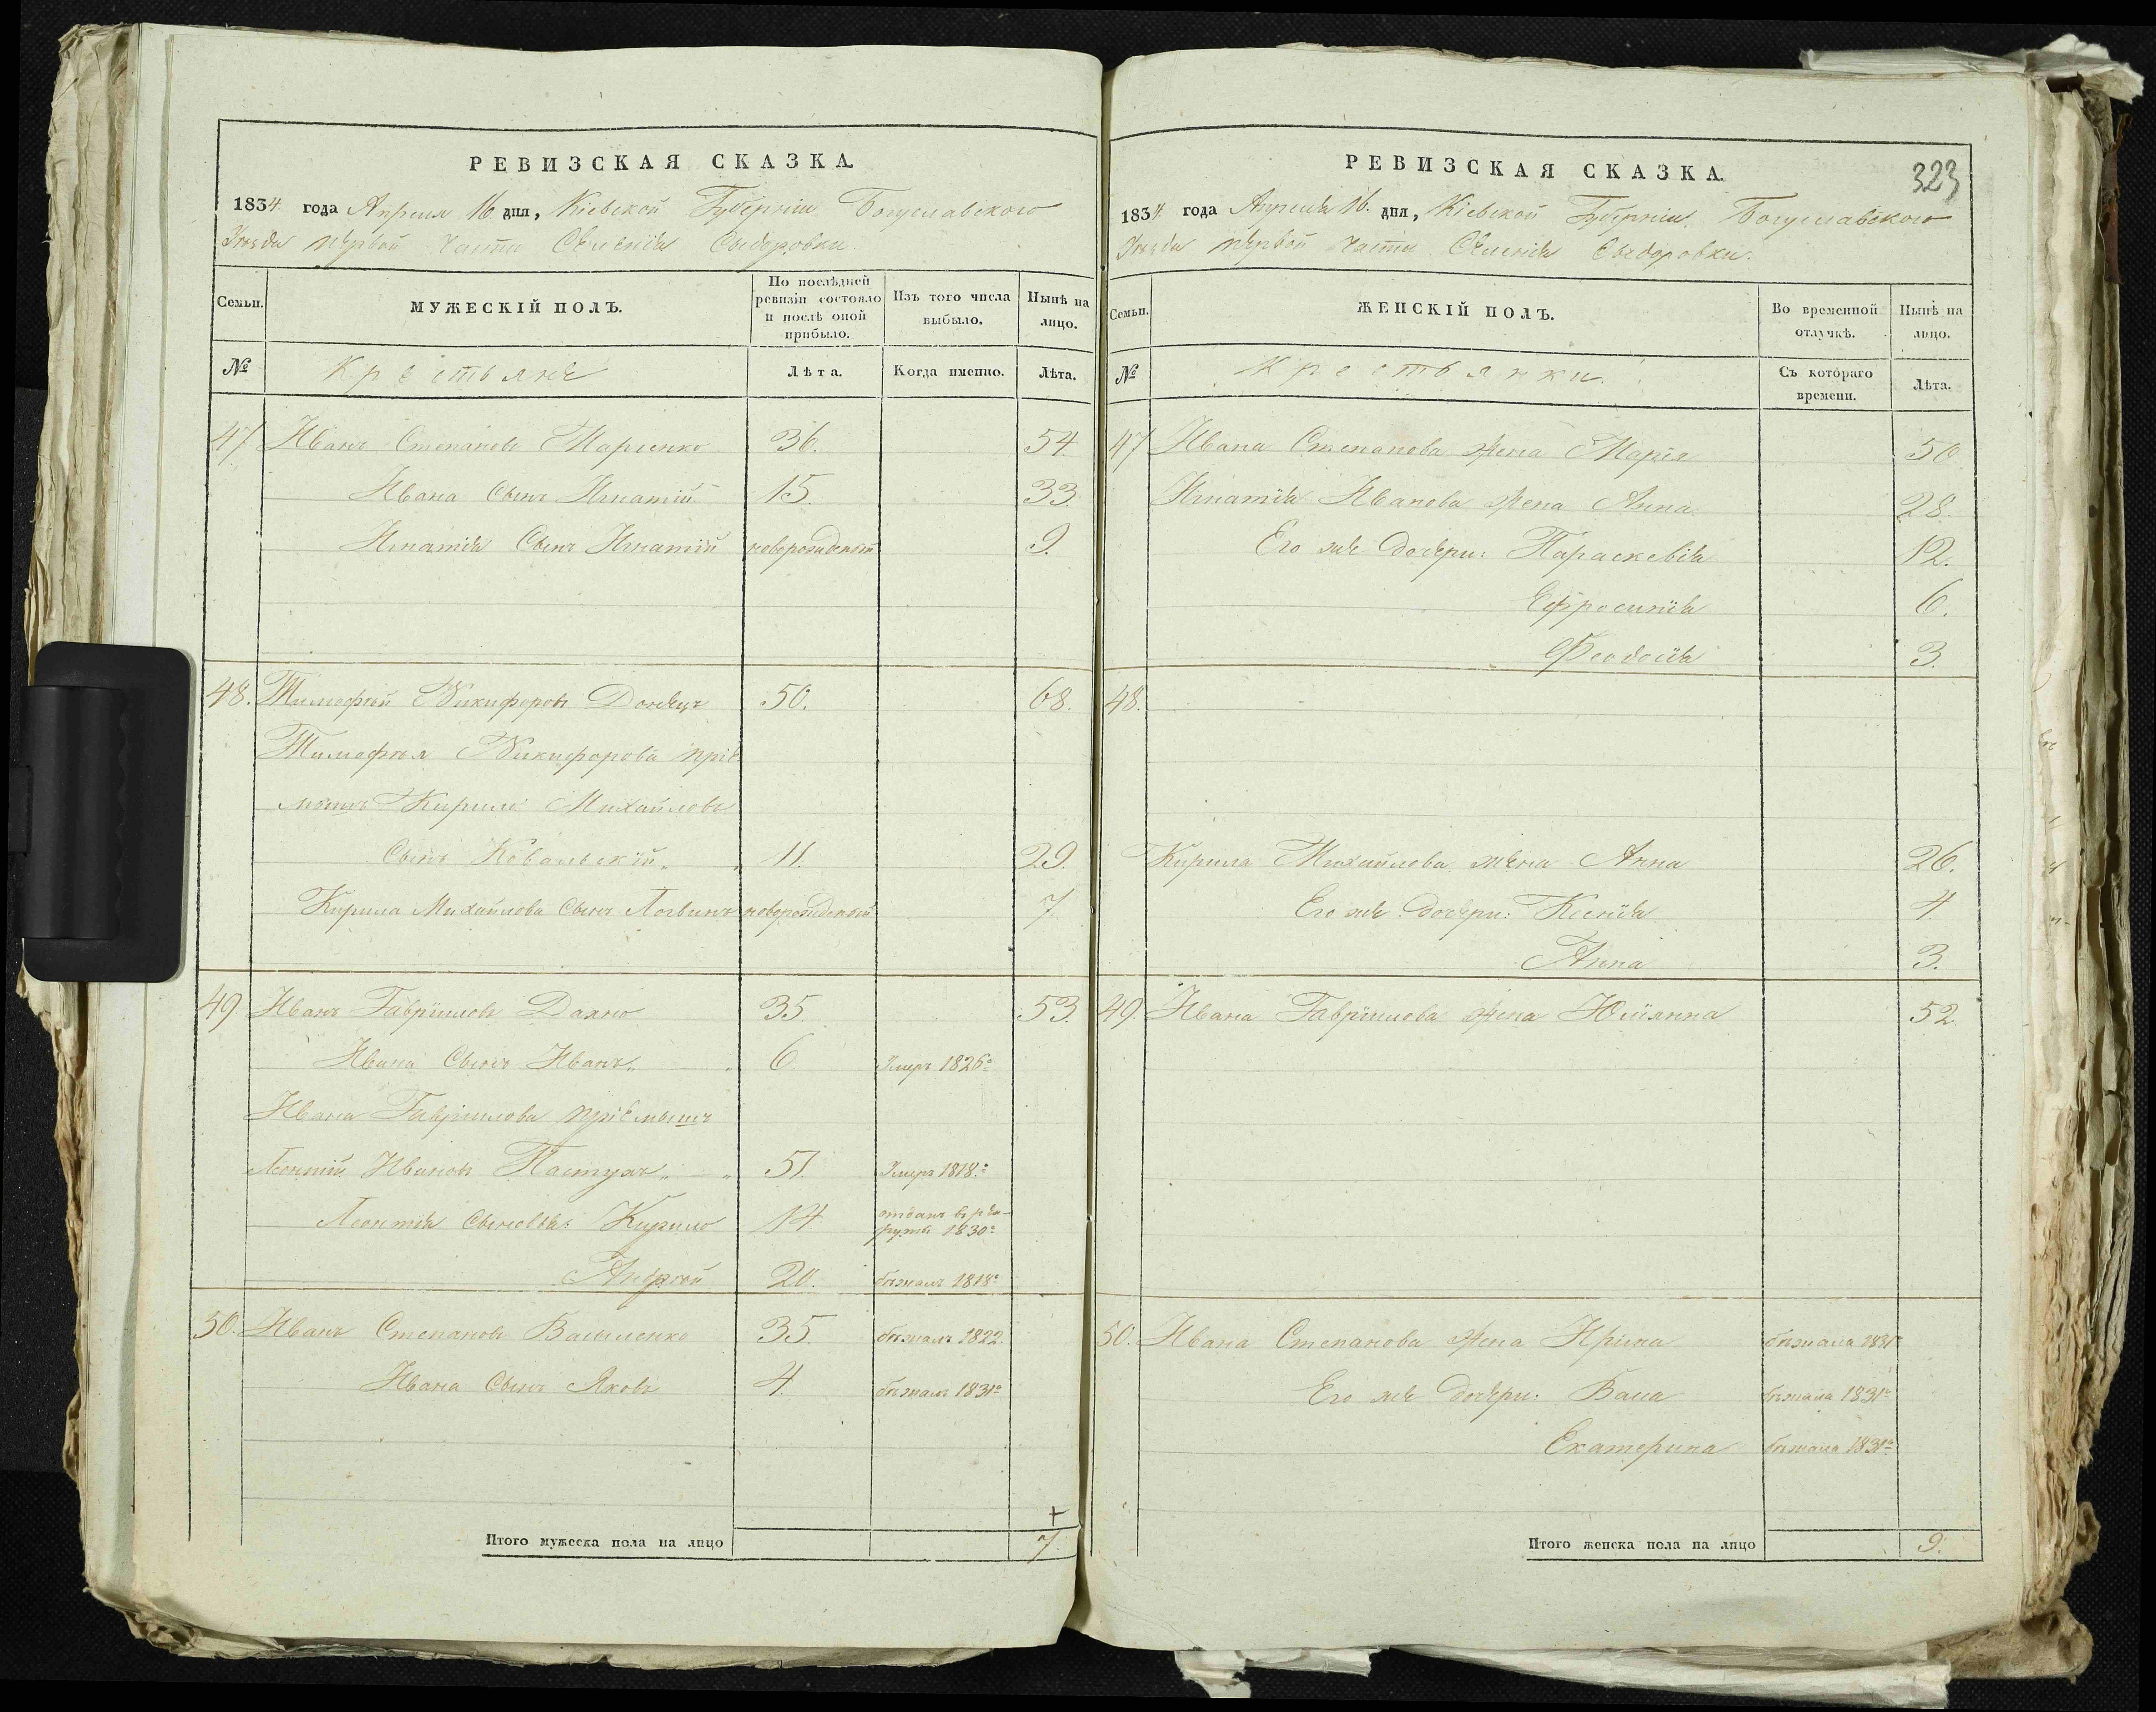 РЕВИЗСКАЯ СКАЗКА.
1834 года Апреля 16 дня, Кіевской Губерніи Богуславского
Уезда первой части Селенія Сыдоровки.
Семьи. МУЖЕСКІЙ ПОЛЪ. По послѣдней ревизіи состояло и послѣ оной прибыло. Изъ того числа выбыло. Нынѣ на лицо.
№ Крестьяне Лѣта. Когда именно. Лѣта.
47 Иванъ Степановъ Маринко 36. 54.
Ивана Сынъ Игнатій 15. 33.
Игнатія Сынъ Игнатій новорожденый 9.
48. Тимофѣй Никифоровъ Донецъ 50. 68.
Тимофѣя Никифорова пріе
мышъ Кирило Михайловъ
Сынъ Ковальскій 11. 29.
Кирила Михайлова Сынъ Логвинъ новорожденый 7.
49. Иванъ Гавріиловъ Дахно 35. 53.
Ивана Сынъ Иванъ 6 Умеръ 1826го
Ивана Гавріилова пріемышъ
Леонтій Ивановъ Пастухъ 51. Умеръ 1818го
Леонтія Сыновья: Кирило 14 отданъ въ ре-
круты 1830го
Андрей 20. бѣжалъ 1818го
50. Иванъ Степановъ Василенко 35 бѣжалъ 1822.
Ивана Сынъ Яковъ 4. бѣжалъ 1831го
Итого мужеска пола на лицо 7.
РЕВИЗСКАЯ СКАЗКА.
323
1834. года Апреля 16. дня, Кіевской Губерніи Богуславского
Уезда первой части Селенія Сыдоровки.
Семьи. ЖЕНСКІЙ ПОЛЪ. Во временной отлучкѣ. Нынѣ на лицо.
№ Крестьянки. Съ котораго времени. Лѣта.
47 Ивана Степанова жена Марія 50
Игнатія Иванова жена Анна 28.
Его же дочери: Параскевія 12.
Ефросинія 6.
Феодосія 3.
48.
Кирила Михайлова жена Анна 26.
Его же дочери: Ксенія 4
Анна 3.
49. Ивана Гавріилова жена Юліянна 52.
50. Ивана Степанова жена Ирина бѣжала 1831го
Его же дочери: Васа бѣжала 1831го
Екатерина бѣжала 1831го
Итого женска пола на лицо 9.